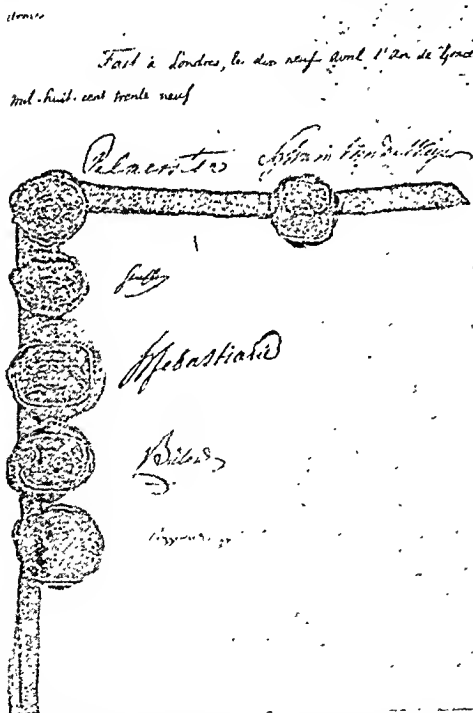 armes
Fait à Londres, le dix neuf Avril l'An de Grace
mil-huit-cent trente neuf
Palmerston Sylvain Van de Weyer
Senfft
H Sebastiani
Bülow